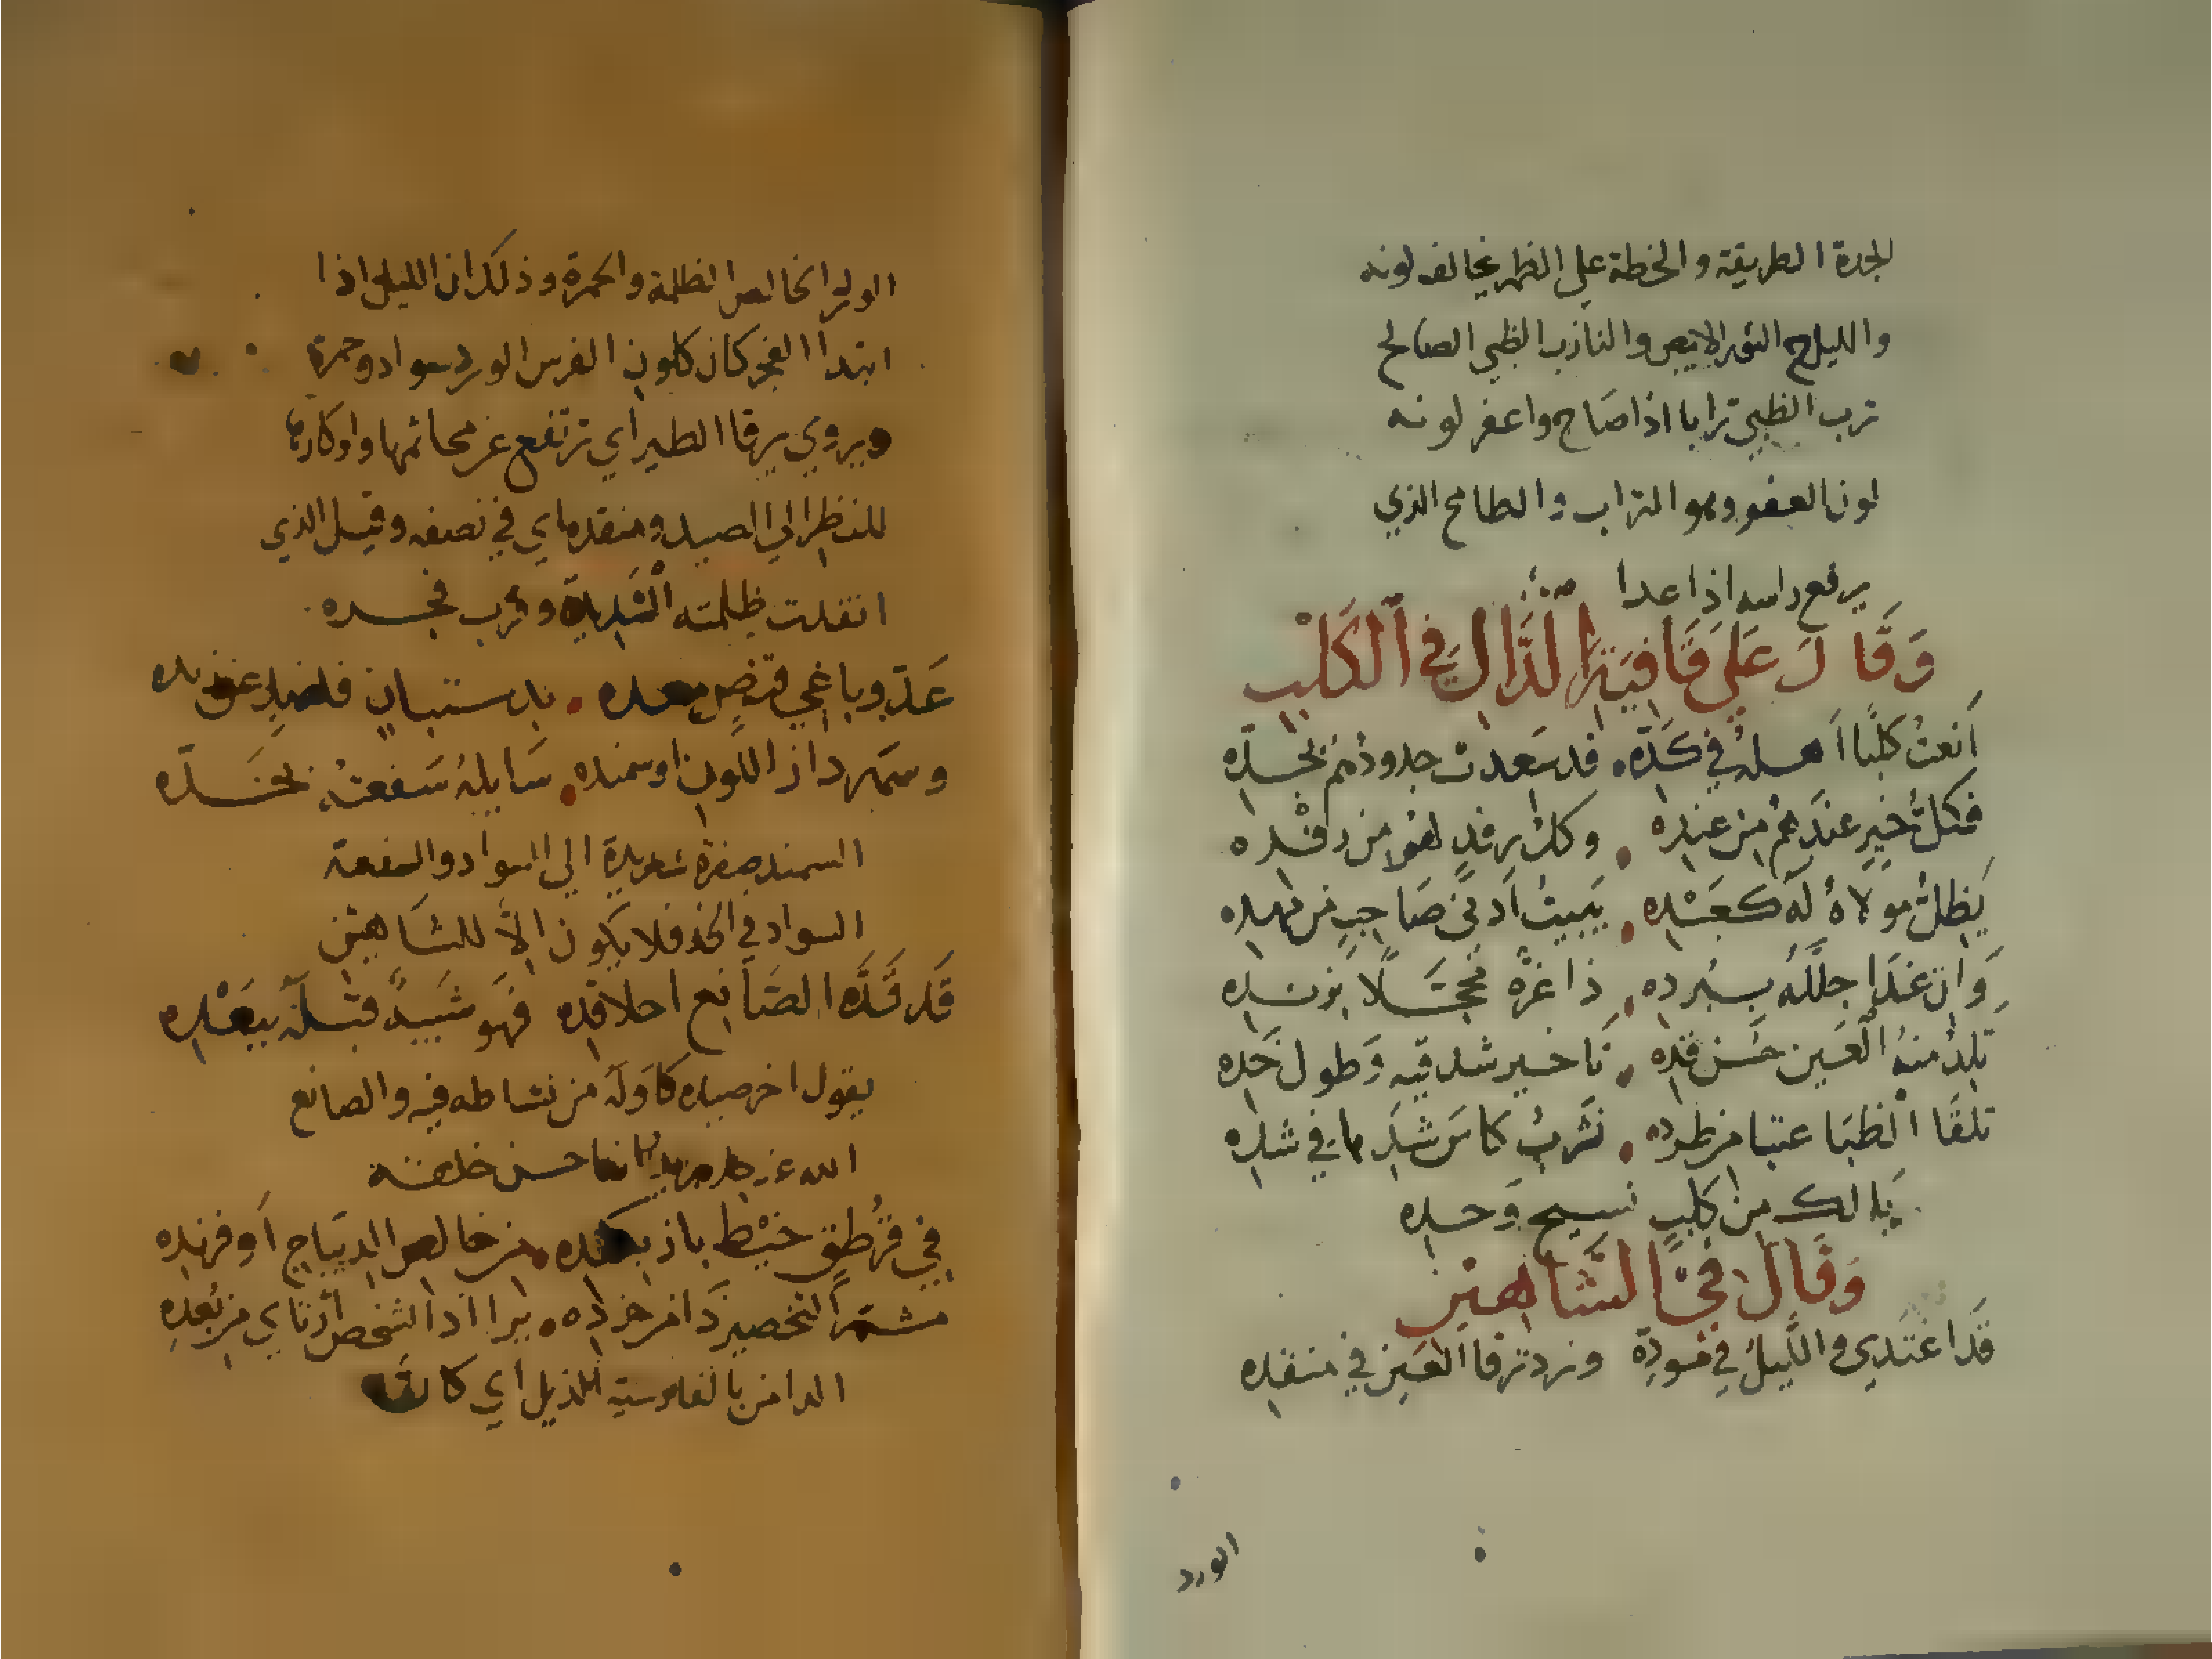 الجدة الطريقة والخطة علي الظهر يخالف لونه
والليلح الثور الابيض والنازب الظبي الصالح
نزب الظبي نزابا اذا صاح واعفر لونه
لون العفر وهو التراب والطامح الذي
يرفع راسه اذا عدا
وَقَالَ عَلَي قَافِيَةِ الدَّالِ فِي الكَلْبِ
اَنعتُ كلبًا اَهلهُ في كَدِّه قد سَعدت جدودُهم بجدّه
فكلُّ خيرٍ عندَهُم من عندِه وكلُّ رفدٍ لهم من رفْده
يَظلُّ مولاهُ له كعَبْدِه يَبيتُ اَدنَي صَاحبٍ من مهده
وَان غَدَا جلَّلهُ ببُرده ذا غرّة محجّلًا بزنده
تلذُ منهُ العَين حُسن قدِه تاخير شدقيه وَطول خَده
تلقَا الظبَا عنتا من طرده نَشربُ كاسَ شَدِّها في شدِه
يا لك من كلبٍ نسيج وَحده
وَقَالَ فِي الشَّاهِينِ
قَد اغتَدي والليلُ في مسودِّه ورد ترقا العَين في منقده
الورد
الورد الخالص الظلمة والحمرة وذلك ان الليل اذا
ابتدا الفجر كان كلون الفرس الورد سواد وحمرة
ويروي يرقا الطير اي ترتفع عن مجاثمها واوكارها
للنظر الي الصيد ومنقده اي في نصفه وقيل الذي
انقدت ظلمته الشديدة وقرب فجده
غَدَوبا غي قنصٍ معده بدستبان فلصيد عن يده
وسمهرداز اللّون او سمنده سَايلهُ سَفعتُه بخَدّه
السمند صفرة شديدة الي السواد والسفعة
السواد في الخد فلا يكون الاّ للشاهين
قَد قَدَّه الصَّانع احلا قده فهو شبيهٌ قبلهُ ببَعْده
يقول اخر صيده كاوله من نشاطه فيه والصانع
الله عز وجل يريد انها حسن خلقته
في قرُطقٍ خيْط باز بكده من خالص الديبَاج اَو فرنده
مشمّر النحصير دَامر خز ده يرا اذا الشخص اُرتاي من بُعدِه
الدامن بالفارسية الذيل اي كانه